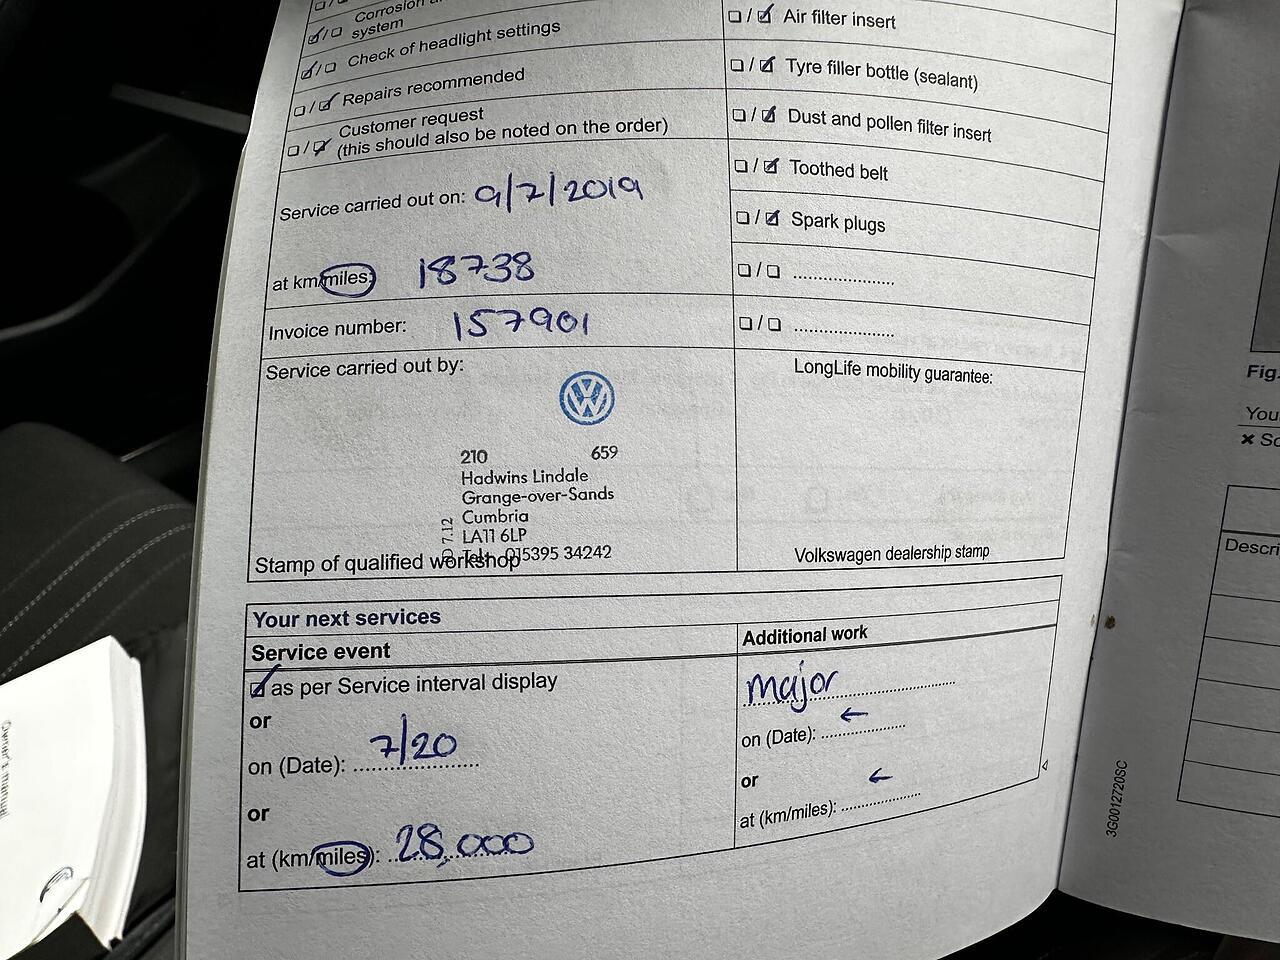 Corrosion
system
☑/☐ Check of headlight settings
☐/☑ Repairs recommended
Customer request
☐/☑ (this should also be noted on the order)
Service carried out on: 9/7/2019
at km/miles: 18738
Invoice number: 157901
Service carried out by:
210 659
Hadwins Lindale
Grange-over-Sands
Cumbria
LA11 6LP
Tel: 015395 34242
7.12
Stamp of qualified workshop
☐/☑ Air filter insert
☐/☑ Tyre filler bottle (sealant)
☐/☑ Dust and pollen filter insert
☐/☑ Toothed belt
☐/☑ Spark plugs
☐/☐ ......................
☐/☐ ......................
LongLife mobility guarantee:
Volkswagen dealership stamp
Your next services
Service event
☑ as per Service interval display
or
on (Date): 7/20
or
at (km/miles): 28,000
Additional work
major
on (Date): ←
or
at (km/miles): ←
3G0012720SC
Fig.
You
Descri
Owner's manual